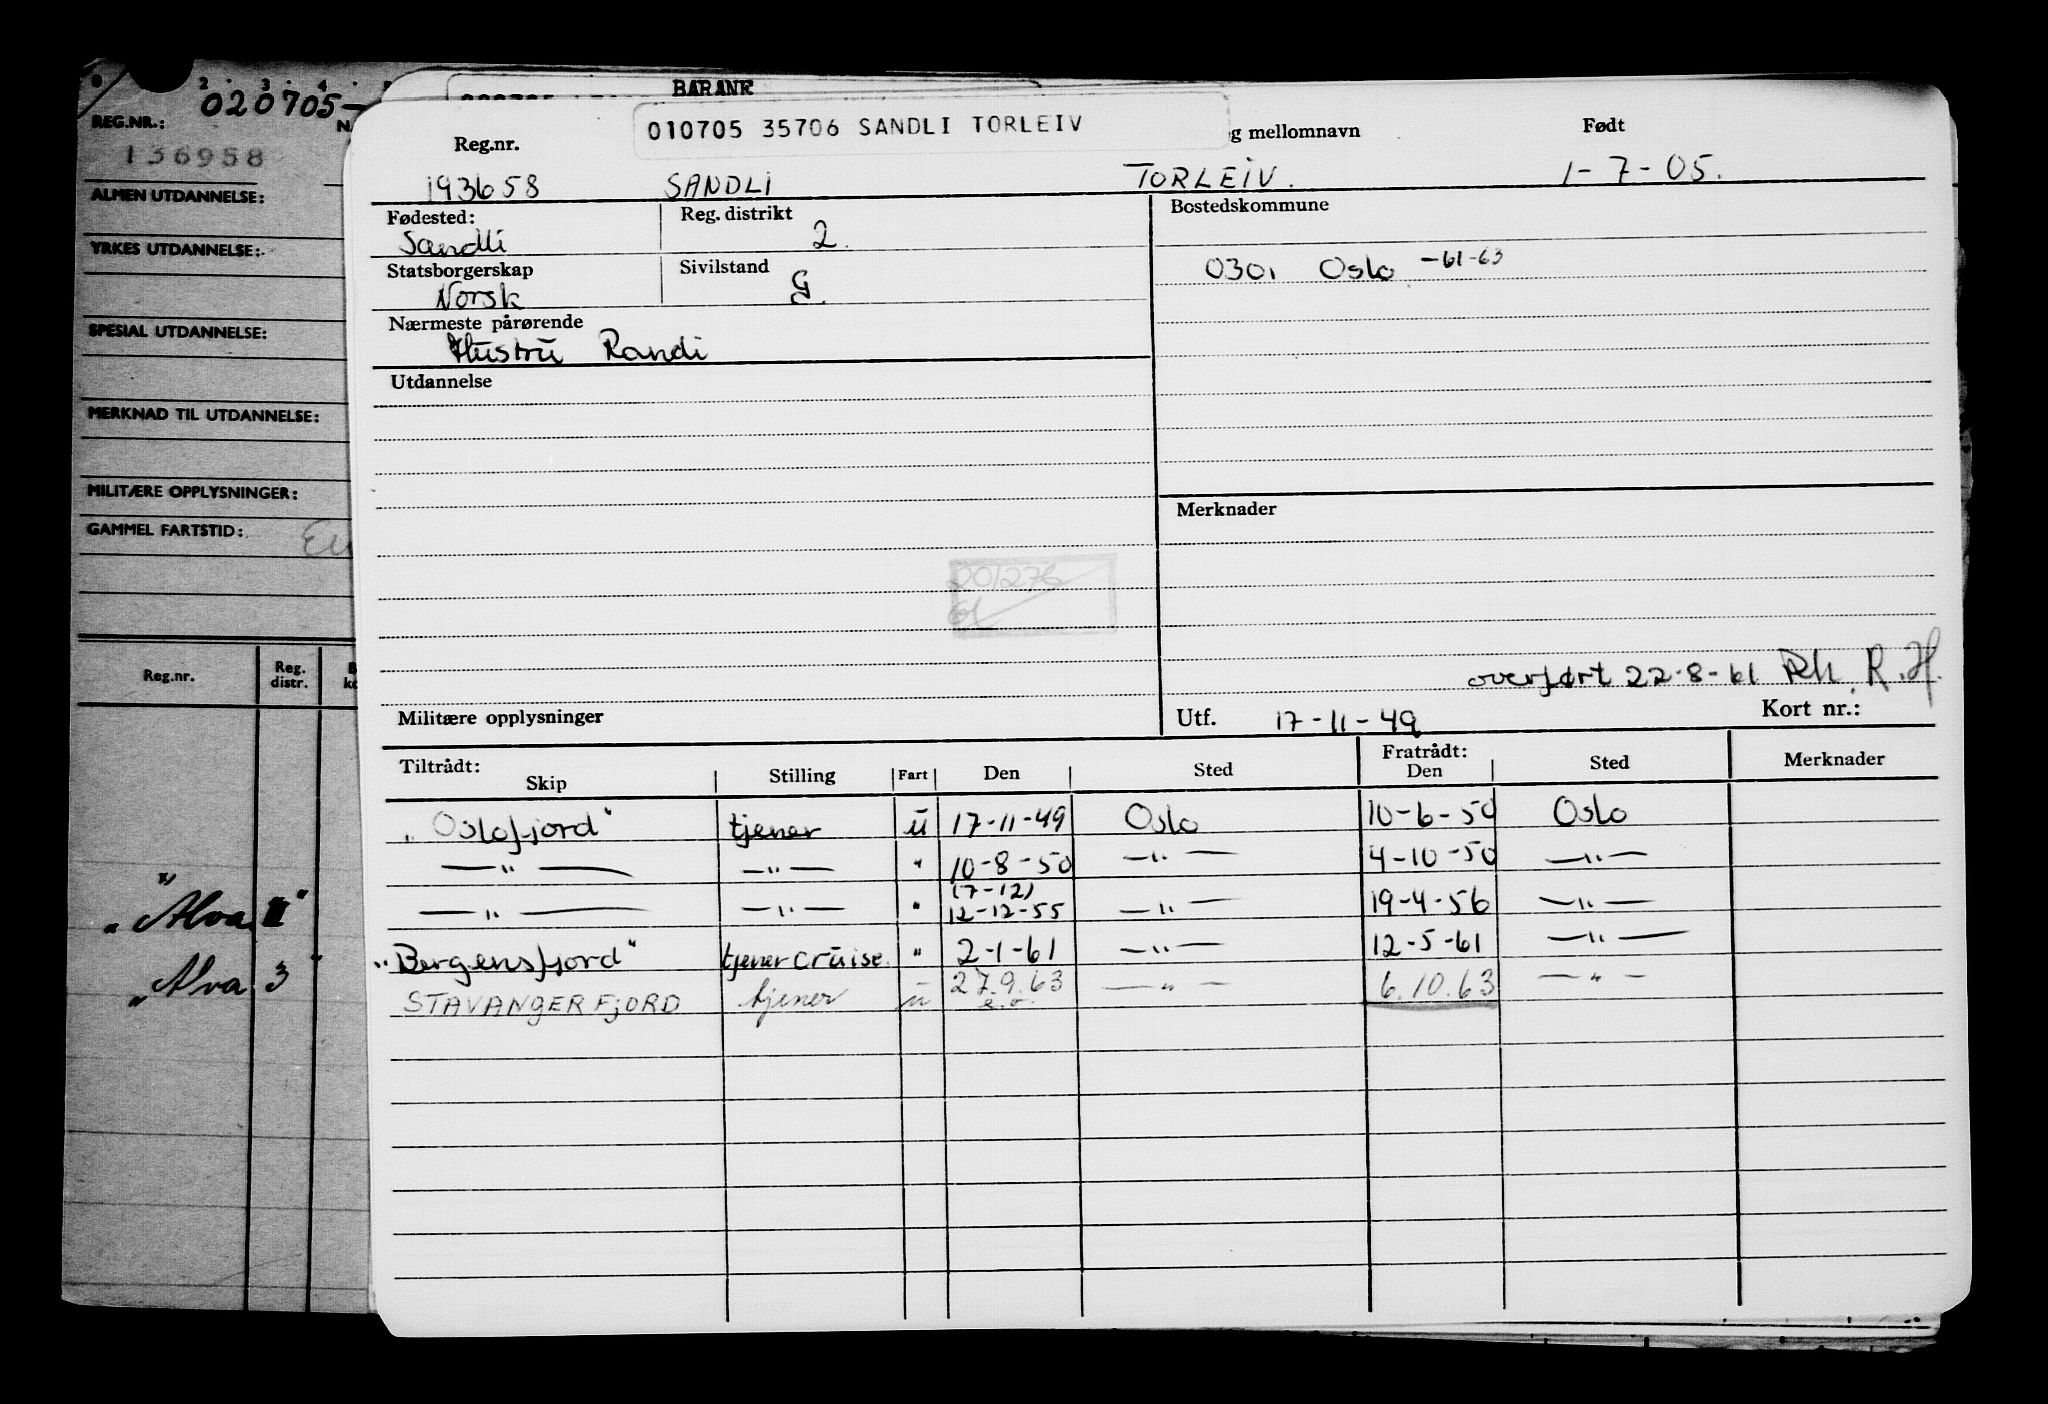 2 3 4
020705-
REG.NR.: N
136958
ALMEN UTDANNELSE:
YRKES UTDANNELSE:
SPESIAL UTDANNELSE:
MERKNAD TIL UTDANNELSE:
MILITÆRE OPPLYSNINGER:
GAMMEL FARTSTID:
Reg.nr. Reg. distr.
"Alva II"
"Alva 3"
BARANK
010705 35706 SANDLI TORLEIV
Reg.nr. og mellomnavn Født
193658 SANDLI TORLEIV. 1-7-05.
Fødested: Reg. distrikt Bostedskommune
Sandli 2.
Statsborgerskap Sivilstand 0301 Oslo -61-63
Norsk G.
Nærmeste pårørende
Hustru Randi
Utdannelse
Merknader
001276
61
overført 22-8-61 R.H.
Militære opplysninger Utf. 17-11-49 Kort nr.:
Tiltrådt: Fratrådt:
Skip Stilling Fart Den Sted Den Sted Merknader
"Oslofjord" tjener u 17-11-49 Oslo 10-6-50 Oslo
—"— —"— " 10-8-50 —"— 4-10-50 —"—
(7-12)
—"— —"— " 12-12-55 —"— 19-4-56 —"—
"Bergensfjord" tjener cruise. " 2-1-61 —"— 12-5-61 —"—
STAVANGERFJORD tjener u 27.9.63 —"— 6.10.63 —"—